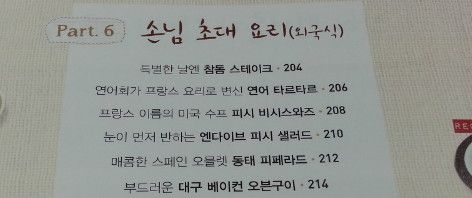 Part. 6 손님 초대 요리(외국식)
특별한 날엔 참돔 스테이크 · 204
연어회가 프랑스 요리로 변신 연어 타르타르 · 206
프랑스 이름의 미국 수프 피시 비시스와즈 · 208
눈이 먼저 반하는 엔다이브 피시 샐러드 · 210
매콤한 스페인 오믈렛 동태 피페라드 · 212
부드러운 대구 베이컨 오븐구이 · 214
REC